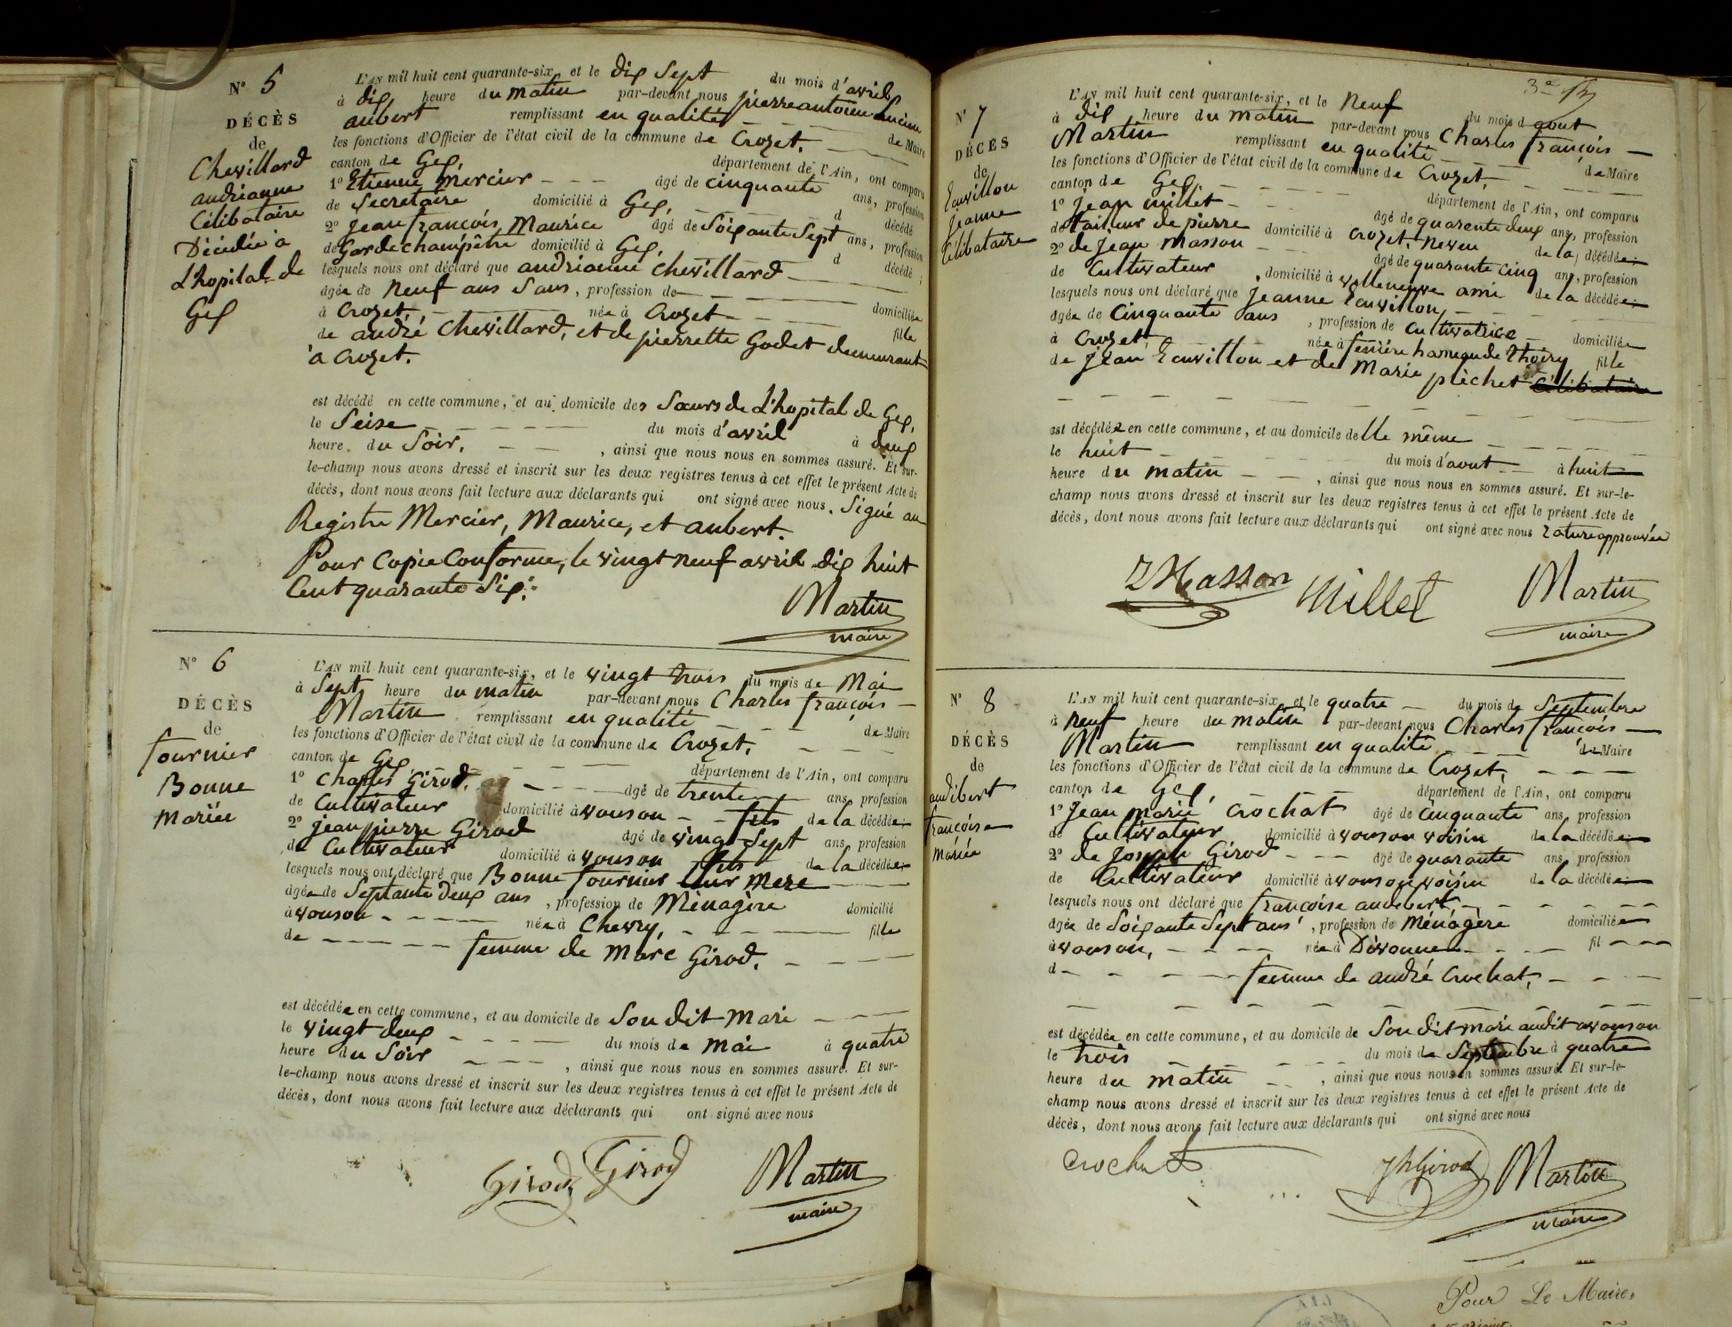 N° 5
DÉCÈS
de
Chevillard
andrianne
Célibataire
Décédée a
l'hopital de
Gex
L'AN mil huit cent quarante-six, et le dix Sept du mois d'avril
à dix heure du matin par-devant nous pierre antoine
aubert remplissant en qualité de Maire
les fonctions d'Officier de l'état civil de la commune de Crozet.
canton de Gex, département de l'Ain, ont comparu
1° Etienne Mercier agé de cinquante ans, profession
de Secretaire domicilié à Gex, d décédé
2° jean francois Maurice agé de Soixante Sept ans, profession
de Garde champêtre domicilié à Gex, d décédé ;
lesquels nous ont déclaré que andrianne chevillard
âgée de neuf ans Sans, profession de
à Crozet, née à Crozet domiciliée
de andré chevillard, et de pierrette Godet demeurant fille
à Crozet.
est décédé en cette commune, et au domicile des Sœurs de L'hopital de Gex,
le Seise du mois d'avril à deux
heure du Soir, , ainsi que nous nous en sommes assuré. Et sur-
le-champ nous avons dressé et inscrit sur les deux registres tenus à cet effet le présent Acte de
décès, dont nous avons fait lecture aux déclarants qui ont signé avec nous. Signé au
Registre Mercier, Maurice, et aubert.
Pour Copie Conforme, le vingt neuf avril dix huit
Cent quarante Six.
Martin
maire
N° 6
DÉCÈS
de
fournier
Bonne
mariée
L'AN mil huit cent quarante-six, et le vingt trois du mois de Mai
à Sept heure du matin par-devant nous Charles françois
Martin remplissant en qualité de Maire
les fonctions d'Officier de l'état civil de la commune de Crozet,
canton de Gex, département de l'Ain, ont comparu
1° Charles Girod. agé de trente ans profession
de Cultivateur domicilié à vouson fils de la décédée
2° jean pierre Girod agé de vingt Sept ans profession
de Cultivateur domicilié à vouson fils de la décédée
lesquels nous ont déclaré que Bonne fournier leur mere
âgée de Septante deux ans , profession de Ménagère domicilié
à vouson née à Chevry, fille
de femme de Marc Girod.
est décédée en cette commune, et au domicile de Son dit Mari
le vingt deux du mois de mai à quatre
heure du Soir , ainsi que nous nous en sommes assuré. Et sur-
le-champ nous avons dressé et inscrit sur les deux registres tenus à cet effet le présent Acte de
décès, dont nous avons fait lecture aux déclarants qui ont signé avec nous
Girod Girod Martin
maire
N° 7
DÉCÈS
de
Jeanne
Célibataire
L'AN mil huit cent quarante-six, et le Neuf du mois d'aout
à dix heure du matin par-devant nous Charles françois
Martin remplissant en qualité de Maire
les fonctions d'Officier de l'état civil de la commune de Crozet,
canton de Gex, département de l'Ain, ont comparu
1° Jean millet agé de quarente deux ans, profession
de tailleur de pierre domicilié à Crozet, neveu de la décédée
2° de Jean Masson agé de quarante cinq ans, profession
de Cultivateur , domicilié à villeneuve ami de la décédée
lesquels nous ont déclaré que Jeanne
âgée de Cinquante ans , profession de Cultivatrice domiciliée
à Crozet née à hameau de Thoiry fille
de Jean et de Marie pléchet Célibataire
est décédée en cette commune, et au domicile d'elle même
le huit du mois d'aout à huit
heure du matin , ainsi que nous nous en sommes assuré. Et sur-le-
champ nous avons dressé et inscrit sur les deux registres tenus à cet effet le présent Acte de
décès, dont nous avons fait lecture aux déclarants qui ont signé avec nous rature approuvée
Masson Millet Martin
maire
N° 8
DÉCÈS
de
audibert
françoise
mariée
L'AN mil huit cent quarante-six, et le quatre du mois de Septembre
à neuf heure du matin par-devant nous Charles françois
Martin remplissant en qualité de Maire
les fonctions d'Officier de l'état civil de la commune de Crozet,
canton de Gex, département de l'Ain, ont comparu
1° Jean marie Crochat agé de Cinquante ans, profession
de Cultivateur domicilié à vouson voisin de la décédée
2° de Joseph Girod agé de quarante ans profession
de Cultivateur domicilié à vouson voisin de la décédée
lesquels nous ont déclaré que françoise audebert
âgée de Soixante Sept ans , profession de Ménagère domiciliée
à vouson, née à Divonne fil
d femme de andré Crochat,
est décédée en cette commune, et au domicile de Son dit mari audit vouson
le trois du mois de Septembre à quatre
heure du matin , ainsi que nous nous en sommes assuré. Et sur-le-
champ nous avons dressé et inscrit sur les deux registres tenus à cet effet le présent Acte de
décès, dont nous avons fait lecture aux déclarants qui ont signé avec nous
Crochat Jh Girod Martin
maire
Pour Le Maire,